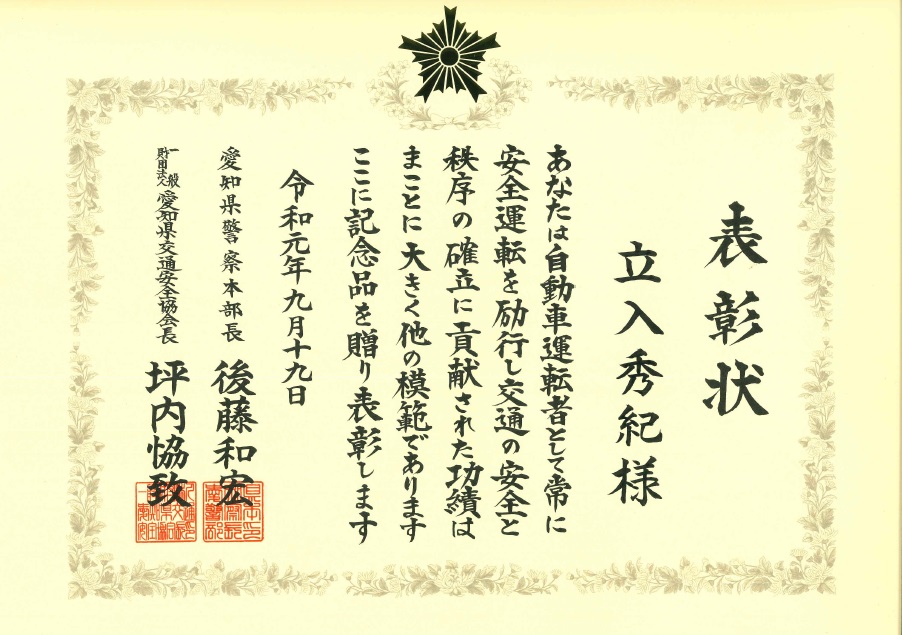 表彰状
立入秀紀様
あなたは自動車運転者として常に
安全運転を励行し交通の安全と
秩序の確立に貢献された功績は
まことに大きく他の模範であります
ここに記念品を贈り表彰します
令和元年九月十九日
愛知県警察本部長 後藤和宏
一般財団法人愛知県交通安全協会長 坪内恊致